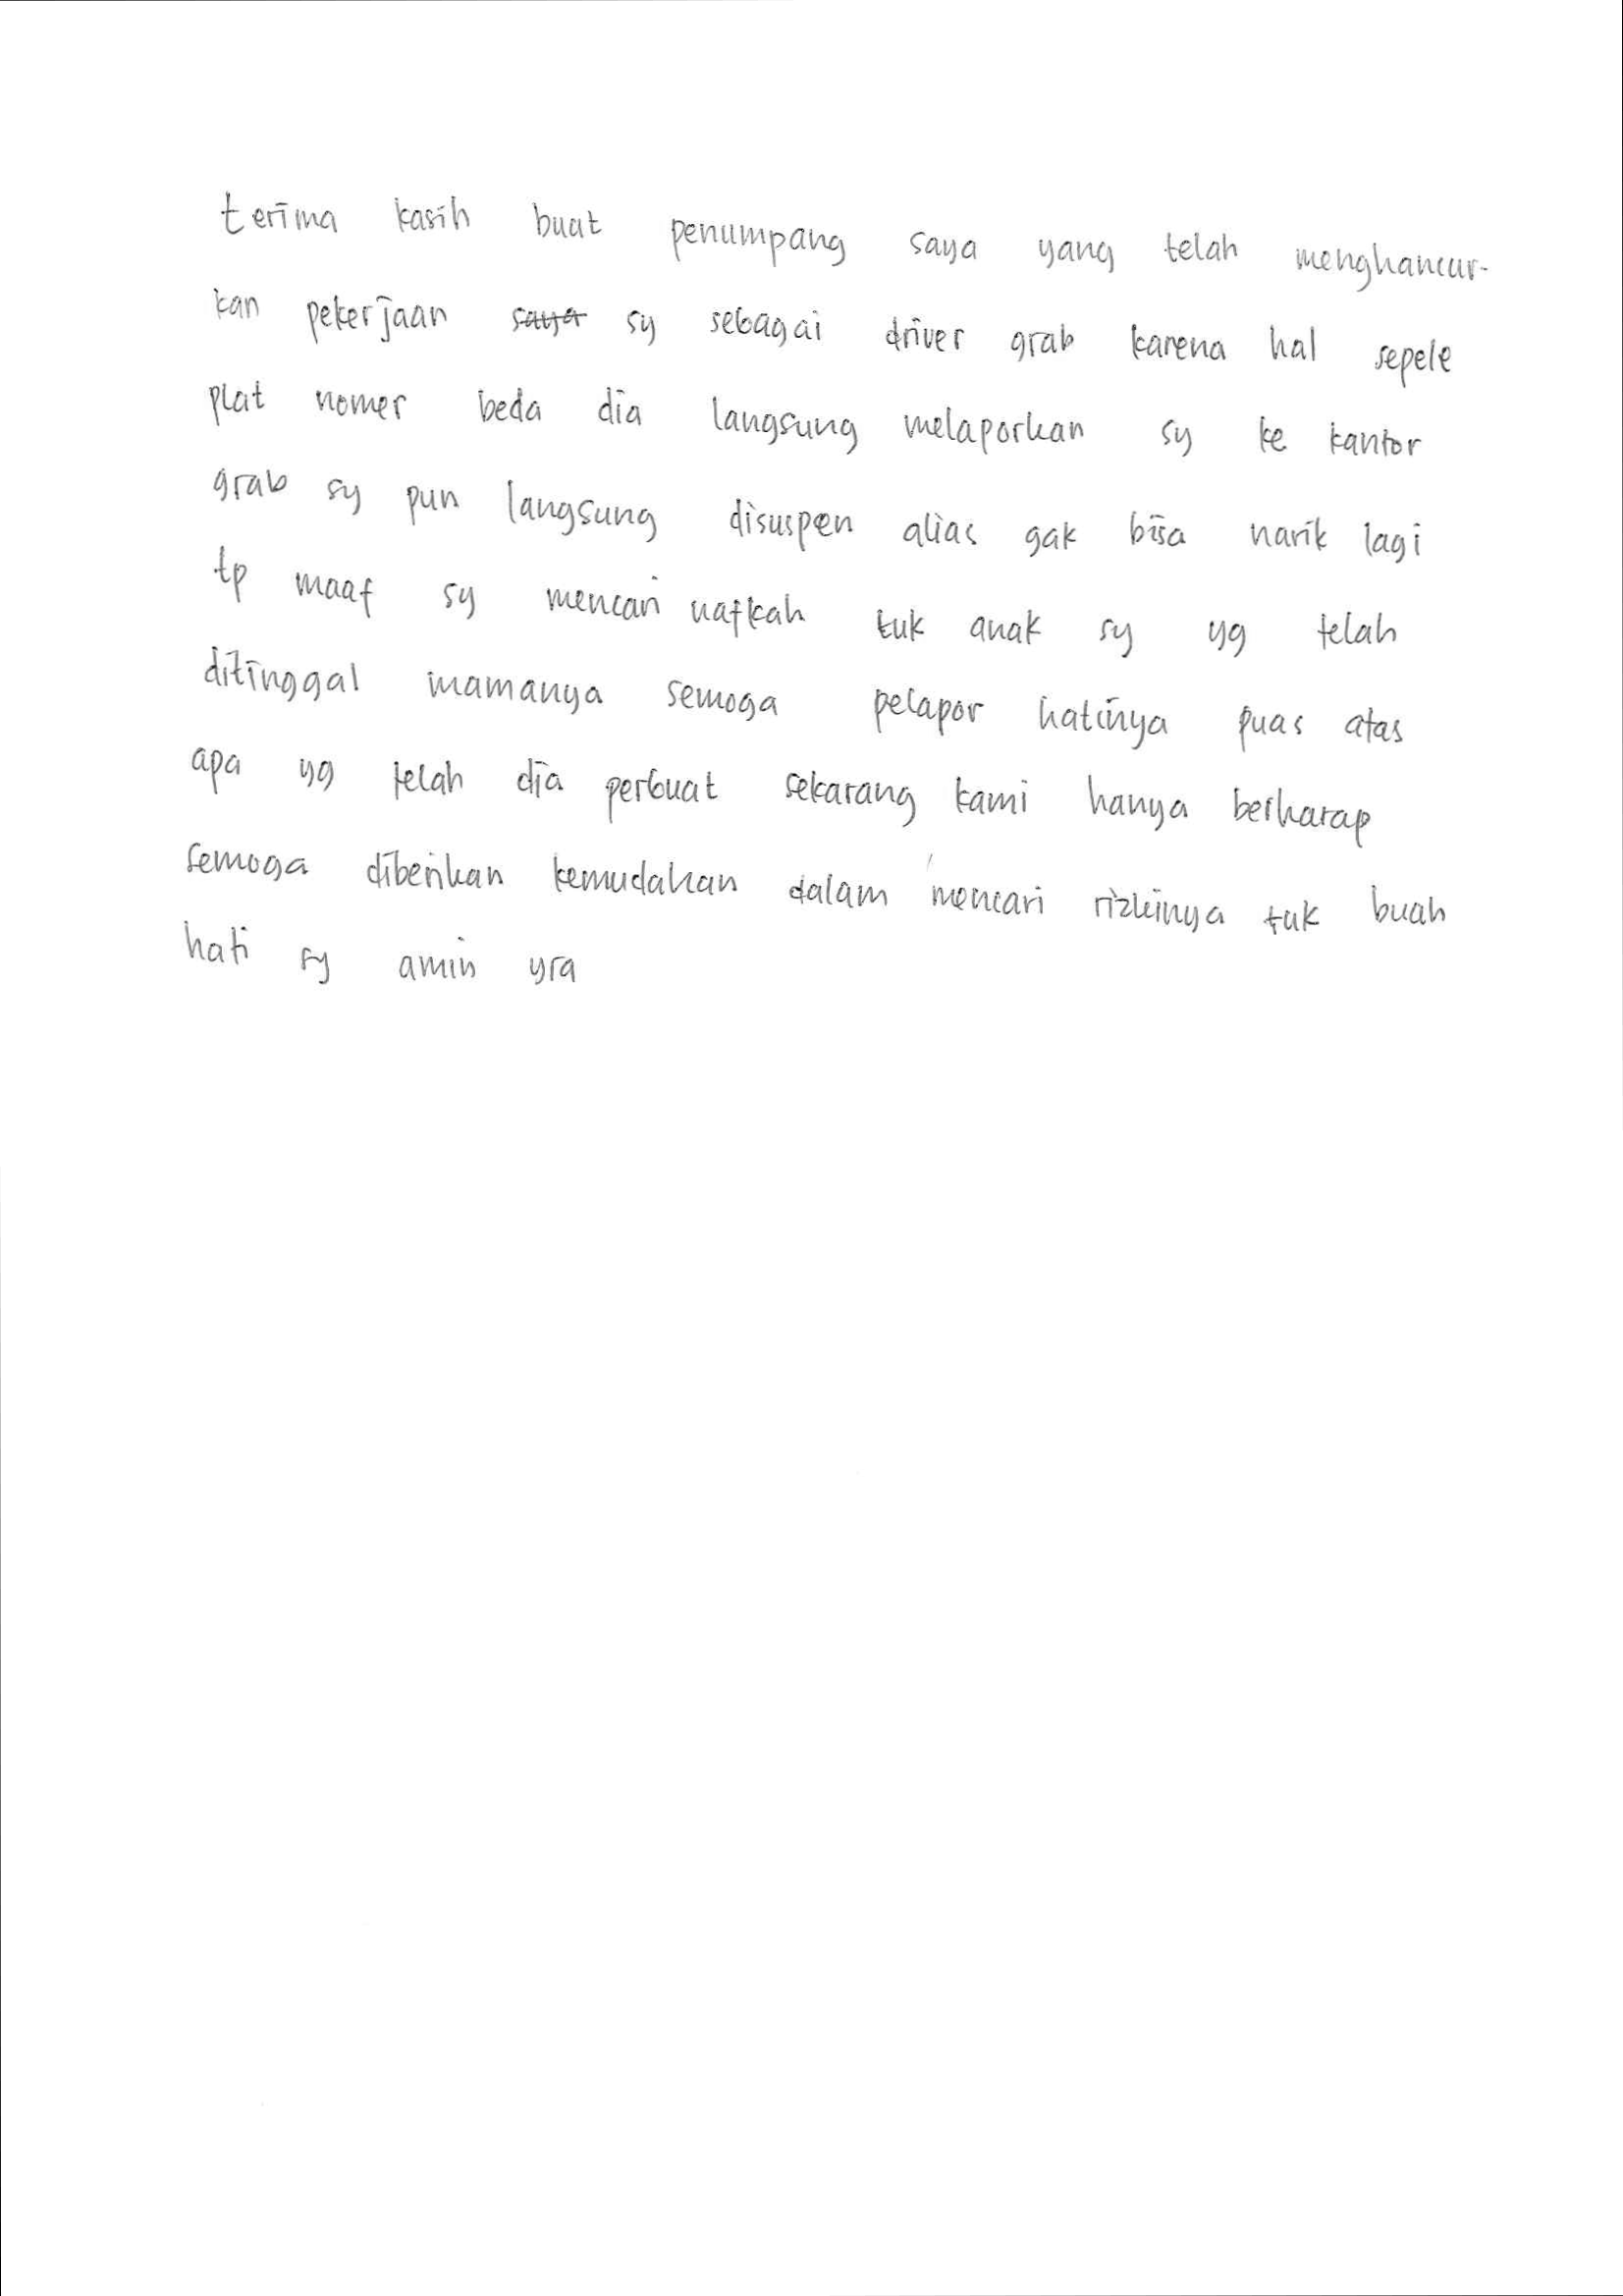 terima kasih buat penumpang saya yang telah menghancur-
kan pekerjaan saya sy sebagai driver grab karena hal sepele
plat nomer beda dia langsung melaporkan sy ke kantor
grab sy pun langsung disuspen alias gak bisa narik lagi
tp maaf sy mencari nafkah tuk anak sy yg telah
ditinggal mamanya semoga pelapor hatinya puas atas
apa yg telah dia perbuat sekarang kami hanya berharap
semoga diberikan kemudahan dalam mencari rizkinya tuk buah
hati sy amin yra